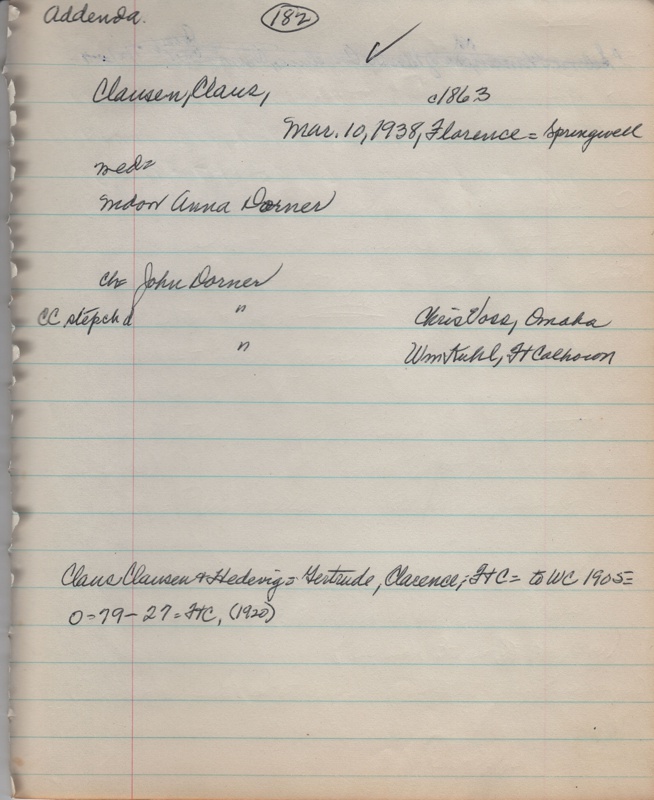 Addenda. 182
Clausen, Claus, c1863
Mar. 10, 1938, Florence = Springwell
med=
mdow Anna Dorner
ch= John Dorner
CC stepchd " Chris Voss, Omaha
" Wm Kuhl, Ft Calhoun
Claus Clausen + Hedevig = Gertrude, Clarence; FtC = to WC 1905=
0-79-27 = FtC, (1920)